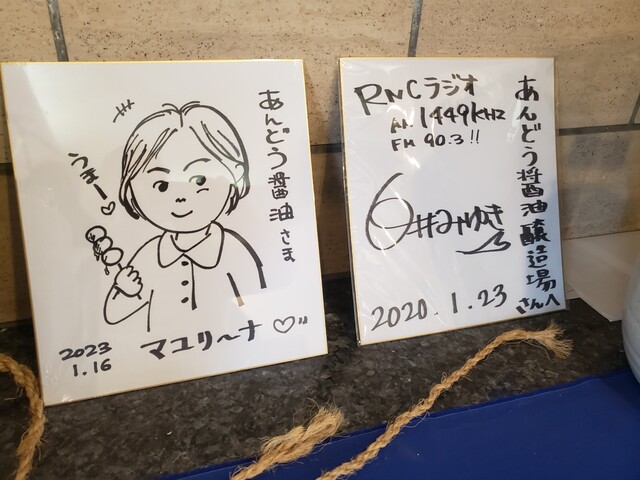 あんどう醤油さま
うまー♡
2023
1.16
マユリ〜ナ♡
あんどう醤油醸造場
さんへ
RNCラジオ
AM 1449KHZ
FM 90.3!!
みゆき
2020.1.23